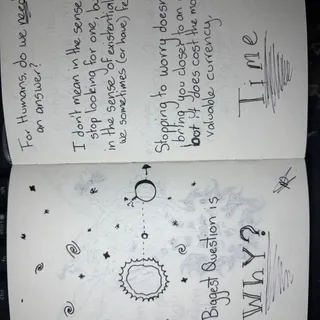 Biggest Question is
WHY?
For Humans, do we need
an answer?
I don't mean in the sense
stop looking for one,
in the sense of existential
we sometimes (or have)
Stopping to worry
bring you closer to an
but it does cost the
valuable currency.
Time